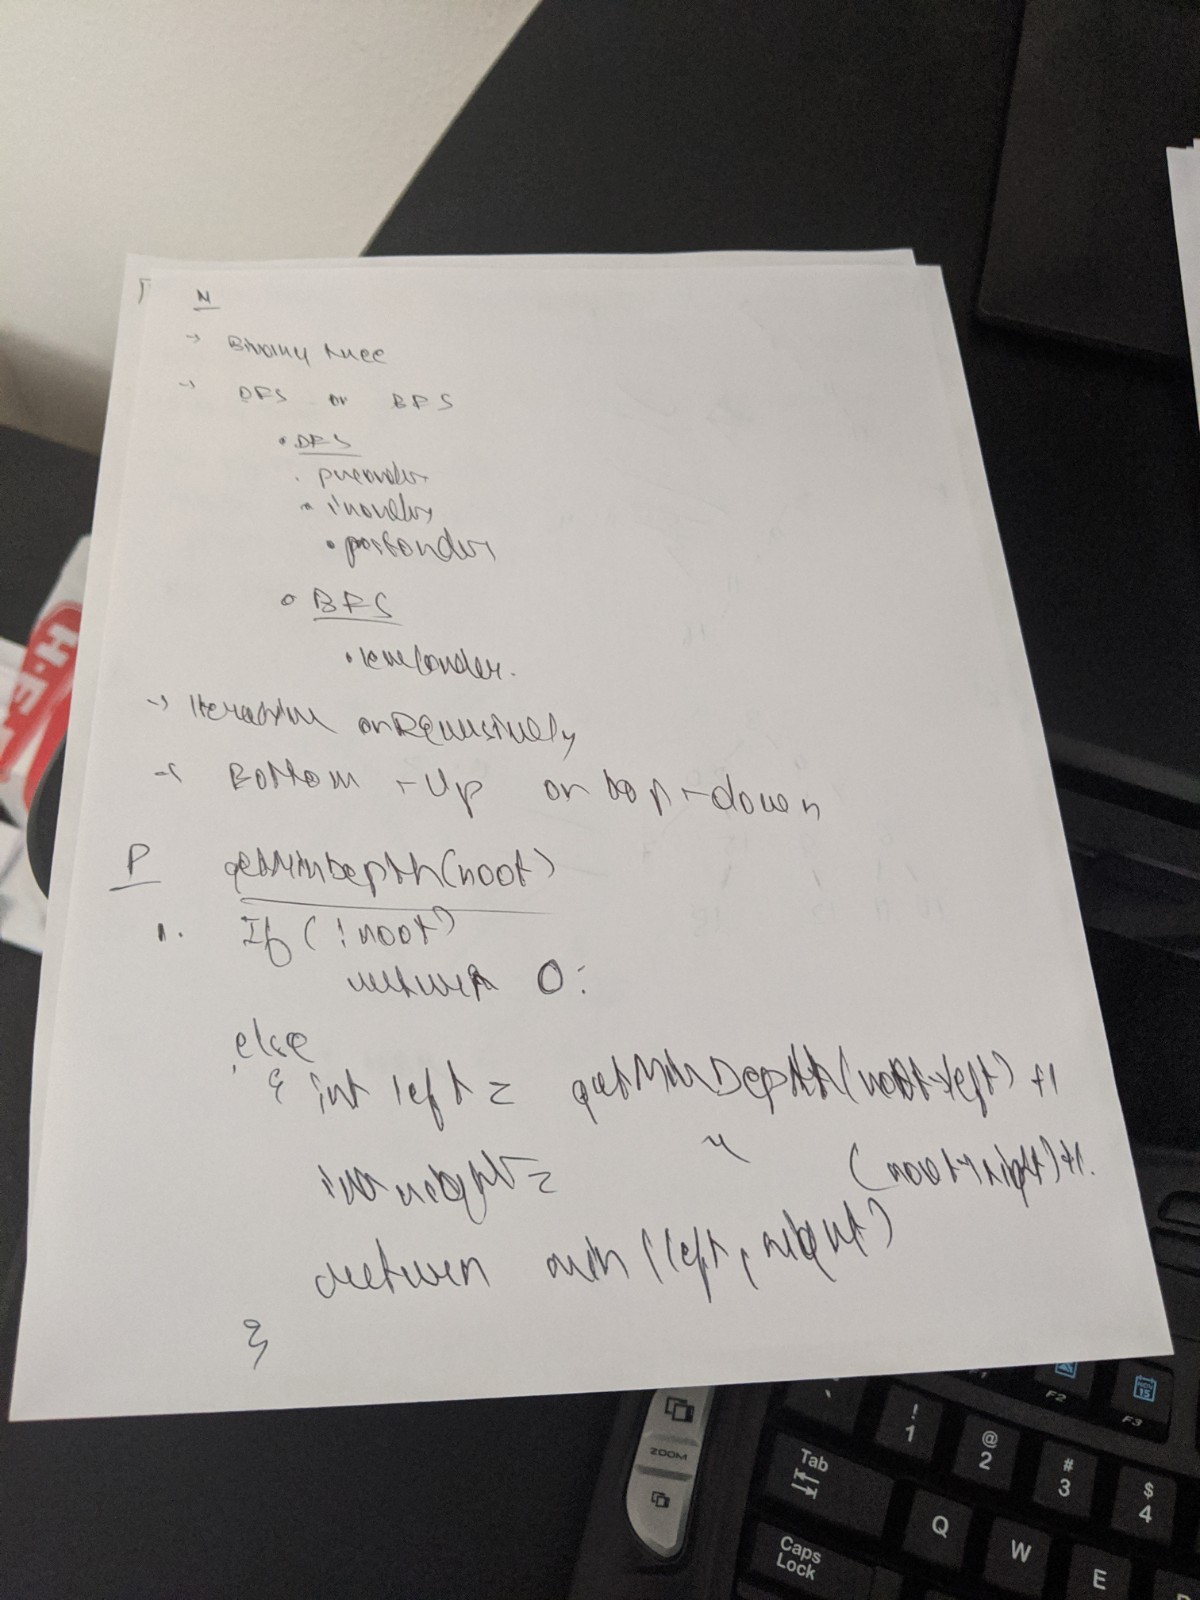 N
→ Binary tree
→ DFS or BFS
• DFS
• preorder
• inorder
• postorder
• BFS
• levelorder.
→ Iterative or Recursively
→ Bottom-up or top-down
P getMinDepth(root)
1. If (!root)
return 0;
else
{ int left = getMinDepth(root→left) +1
int right = " (root→right)+1.
return min(left, right)
}
H-E-B
ZOOM
F1
F2
NOV 15
F3
! 1
@ 2
# 3
$ 4
Tab
Q
W
E
Caps Lock